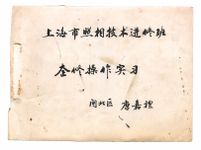 上海市照相技术进修班
整修操作实习
闸北区 唐嘉理